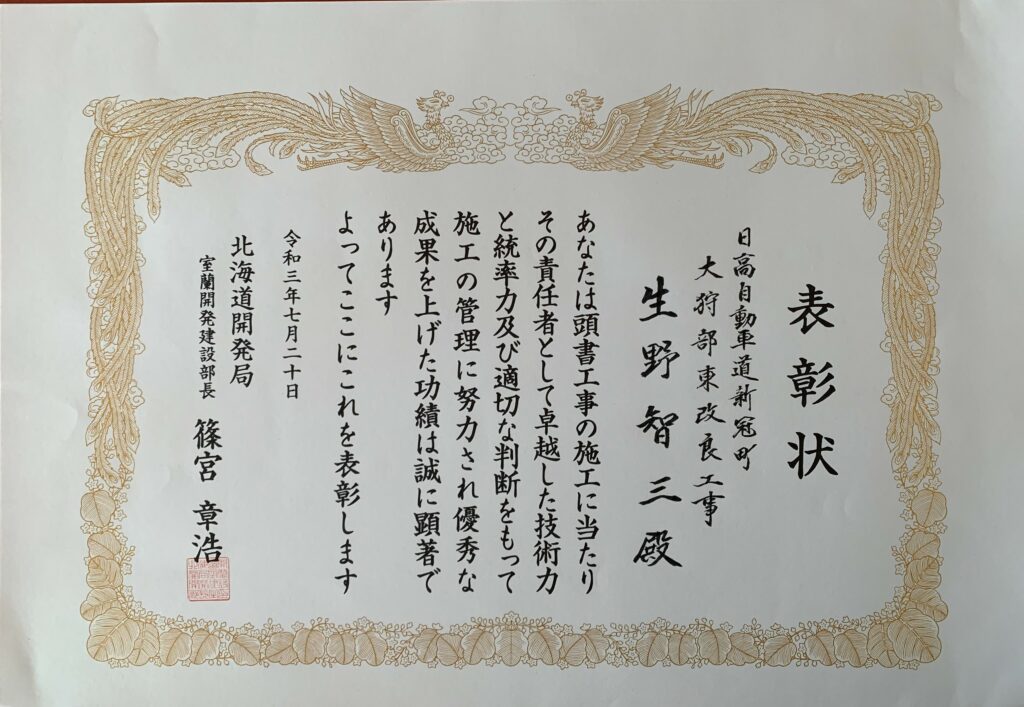 表彰状
日高自動車道新冠町
大狩部東改良工事
生野智三殿
あなたは頭書工事の施工に当たり
その責任者として卓越した技術力
と統率力及び適切な判断をもって
施工の管理に努力され優秀な
成果を上げた功績は誠に顕著で
あります
よってここにこれを表彰します
令和三年七月二十日
北海道開発局
室蘭開発建設部長 篠宮章浩